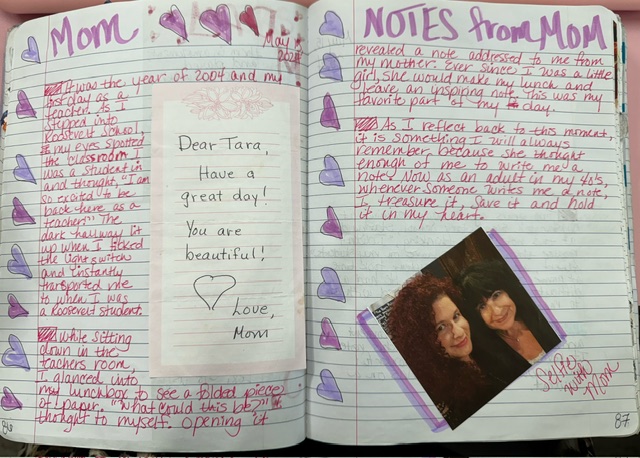 Mom
May
2021
It was the year of 2004 and my
first day as a
teacher. As I
stepped into
Roosevelt School,
my eyes spotted
the classroom I
was a student in
and thought, "I am
so excited to be
back here as a
teacher!" The
dark hallway lit
up when I flicked
the light switch
and instantly
transported me
to when I was
a Roosevelt student.
While sitting
down in the
teachers room,
I glanced into
my lunchbox to see a folded piece
of paper. "What could this be?" I
thought to myself. Opening it
86
Dear Tara,
Have a
great day!
You are
beautiful!
Love,
Mom
NOTES from MOM
revealed a note addressed to me from
my mother. Ever since I was a little
girl, she would make my lunch and
leave an inspiring note. This was my
favorite part of my day.
As I reflect back to this moment,
it is something I will always
remember because she thought
enough of me to write me a
note. Now as an adult in my 40s,
whenever someone writes me a note,
I treasure it, save it and hold
it in my heart.
Selfie
with
Mom
87